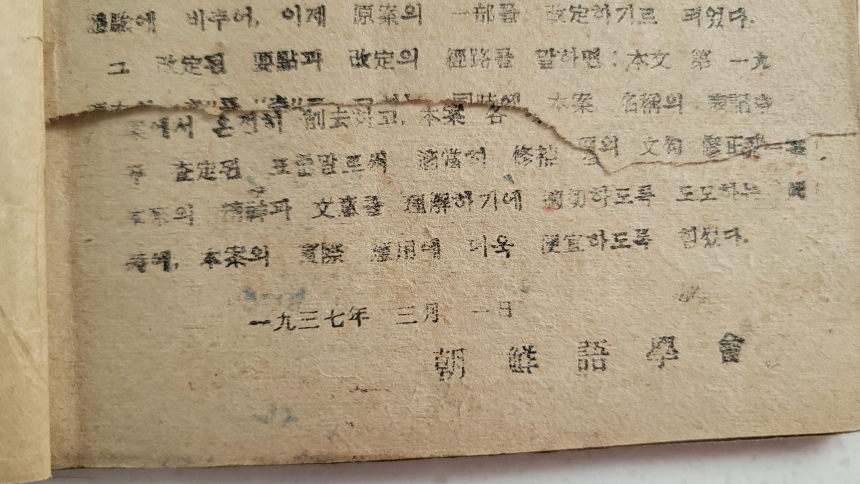 에 비추어, 이제 原案의 一部를 改定하기로 되었다.
그 改定된 要點과 改定의 經路를 말하면: 本文 第 一九
同時에 本案 名稱의
에서 온전히 削去하고, 本案 各
査定된 표준말로써 適當히 修補 의 文句 修正
의 理論과 文意를 理解하기에 適切하도록 도모하는
時에, 本案의 實際 應用에 더욱 便宜하도록 힘썼다.
一九三七年 三月 一日
朝鮮語學會